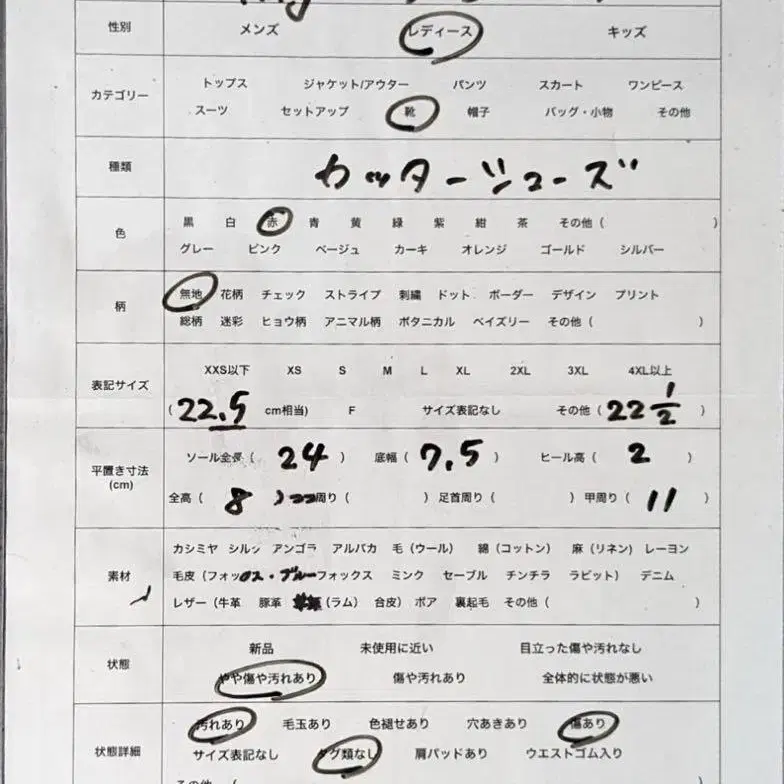 性別 メンズ レディース キッズ
トップス ジャケット/アウター パンツ スカート ワンピース
カテゴリー
スーツ セットアップ 靴 帽子 バッグ・小物 その他
種類 カッターシューズ
黒 白 赤 青 黄 緑 紫 紺 茶 その他( )
色
グレー ピンク ベージュ カーキ オレンジ ゴールド シルバー
無地 花柄 チェック ストライプ 刺繍 ドット ボーダー デザイン プリント
柄
総柄 迷彩 ヒョウ柄 アニマル柄 ボタニカル ペイズリー その他( )
XXS以下 XS S M L XL 2XL 3XL 4XL以上
表記サイズ
(22.5 cm相当) F サイズ表記なし その他(22 1/2)
ソール全長( 24 ) 底幅( 7.5 ) ヒール高( 2 )
平置き寸法
(cm)
全高( 8 ) 周り( ) 足首周り( ) 甲周り( 11 )
カシミヤ シルク アンゴラ アルパカ 毛(ウール) 綿(コットン) 麻(リネン) レーヨン
素材
毛皮(フォックス・ブルーフォックス ミンク セーブル チンチラ ラビット) デニム
レザー(牛革 豚革 (ラム) 合皮) ボア 裏起毛 その他( )
新品 未使用に近い 目立った傷や汚れなし
状態
やや傷や汚れあり 傷や汚れあり 全体的に状態が悪い
汚れあり 毛玉あり 色褪せあり 穴あきあり 傷あり
状態詳細
サイズ表記なし タグ類なし 肩パッドあり ウエストゴム入り
その他 (